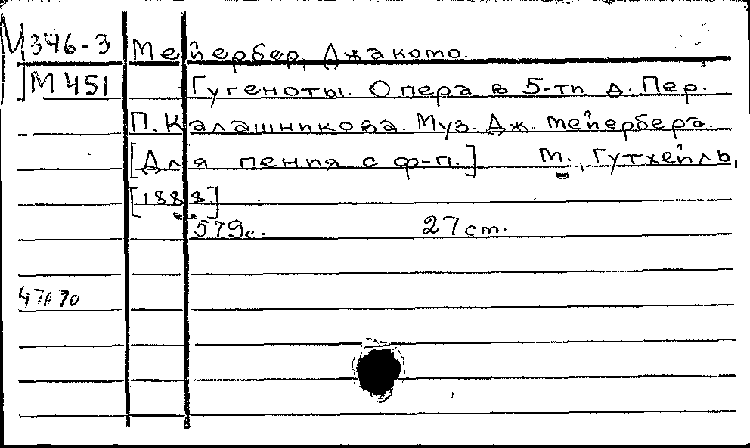 М346-3 Мейербер, Джакомо.
М451 Гугеноты. Опера в 5-ти д. Пер.
П. Калашникова. Муз. Дж. Мейербера.
[Для пения с ф-п.] М., Гутхейль,
[1888]
579с. 27 см.